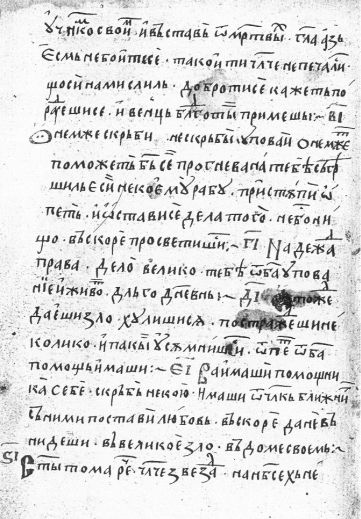 ѹч҃нкⷨо свои . и въставъ ѿ мр҃твы . гл҃а азъ
есмь небоитесе . такои ти чл҃че не печали .
щоси намислилъ . добро ти се кажеть по
раⷣеши се . и венць бл҃готы примешы :~ в҃і
О немже скрьби . не скрьбы ѹповаи о немже
поможеть б҃ь се прогнева на тебѣ съгрⷷ
шилъ еси некоемѹ рабѹ . пристѹпи ѡ
петь . и ѡстави се дела того . не бо ни
що . въскоре просветиши :~ г҃і Надежⷣа
права . дело велико тебѣ ѿ б҃а ѹпова
ние и живо . дльгодневнь :~ д҃і тоже
даеши зло хѹлиши сѧ . постражⷣеши не
колико . и пакы ѹсѧмниши . ѿ б҃а
помощь имаши :~ е҃і Ва имаши помощни
ка себе . скрьбь некою имаши ѿ чл҃кь ближни
съ ними постави любовь . въскоре да не въ
нидеши . въ великое зло . въ домѹ своемь :~
ѕ҃і Сты тома рⷱе . чл҃че звезⷣа . на нб҃сехь не